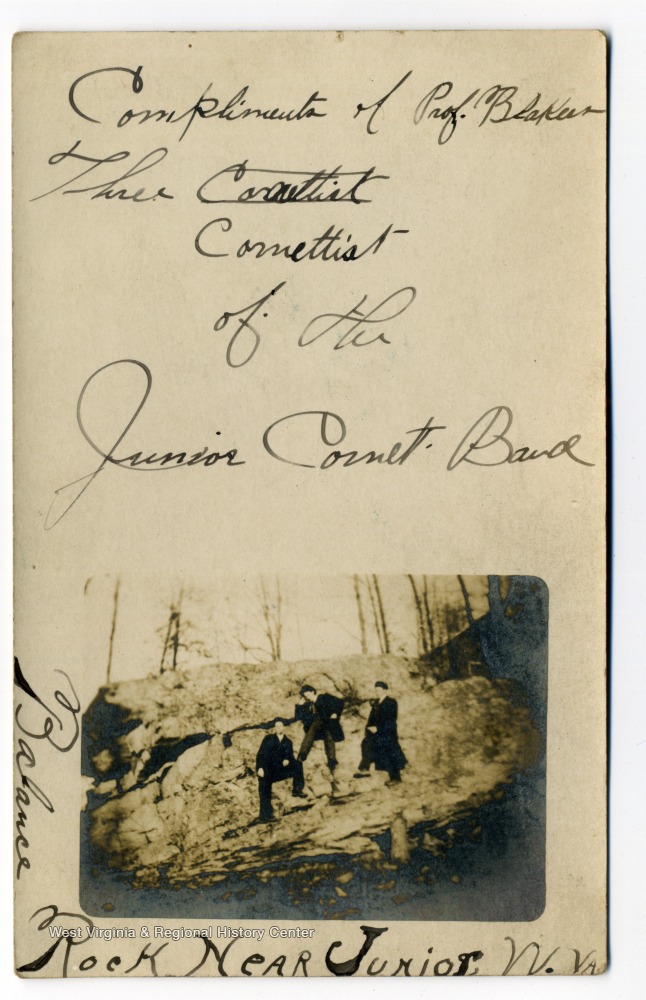 Compliments of Prof. Blakeer
Three Cornettist
Cornettist
of the
Junior Cornet Band
Balance
Rock Near Junior W. Va
West Virginia & Regional History Center